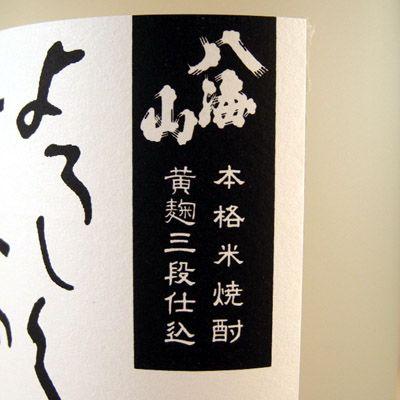 八海山
本格米焼酎
黄麹三段仕込
よろしく